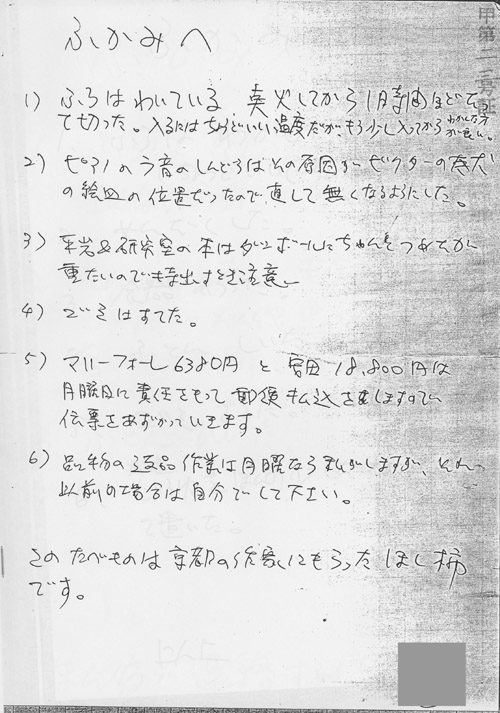 甲第二二号証
ふかみへ
1) ふろはわいている 点火してから1時間ほどたっ
て切った。入るにはちょうどいい温度だが、もう少し入ってからわかした方が良い。
2) ピアノのラ音のしんどうはその原因がビクターの犬
の絵皿の位置だったので直して無くなるようにした。
3) 平岩&研究室の本はダンボールにちゃんとつめたが
重たいので持出すとき注意
4) ゴミはすてた。
5) マリーフォーレ6380円と 18,800円は
月曜日に責任をもって郵便払込をしますので
伝票をあずかっていきます。
6) の返品作業は月曜なら私がしますが、それ
以前の場合は自分でして下さい。
このたべものは京都の作家にもらったほし柿
です。